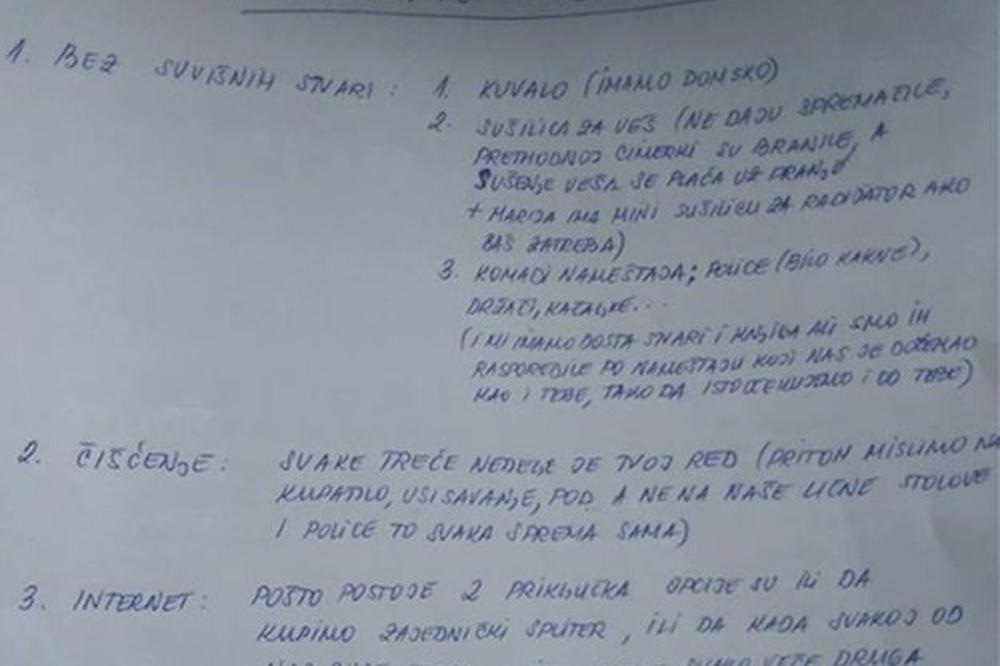 1. BEZ SUVIŠNIH STVARI : 1. KUVALO (IMAMO DOMSKO)
2. SUŠILICA ZA VEŠ (NE DAJU SPREMAČICE,
PRETHODNOJ CIMERKI SU BRANILE, A
SUŠENJE VEŠA SE PLAĆA UZ PRANJE
+ MARIJA IMA MINI SUŠILICU ZA RADIJATOR AKO
BAŠ ZATREBA)
3. KOMADI NAMEŠTAJA; POLICE (BILO KAKVE),
DRŽAČI, KAZALJKE...
(I MI IMAMO DOSTA STVARI I KNJIGA ALI SMO IH
RASPOREDILE PO NAMEŠTAJU KOJI NAS JE DOČEKAO
KAO I TEBE, TAKO DA ISTO OČEKUJEMO I OD TEBE)
2. ČIŠĆENJE : SVAKE TREĆE NEDELJE JE TVOJ RED (PRITOM MISLIMO NA
KUPATILO, USISAVANJE, POD A NE NA NAŠE LIČNE STOLOVE
I POLICE TO SVAKA SPREMA SAMA)
3. INTERNET : POŠTO POSTOJE 2 PRIKLJUČKA OPCIJE SU ILI DA
KUPIMO ZAJEDNIČKI SPLITER, ILI DA KADA SVAKOJ OD
VEČE DRUGA